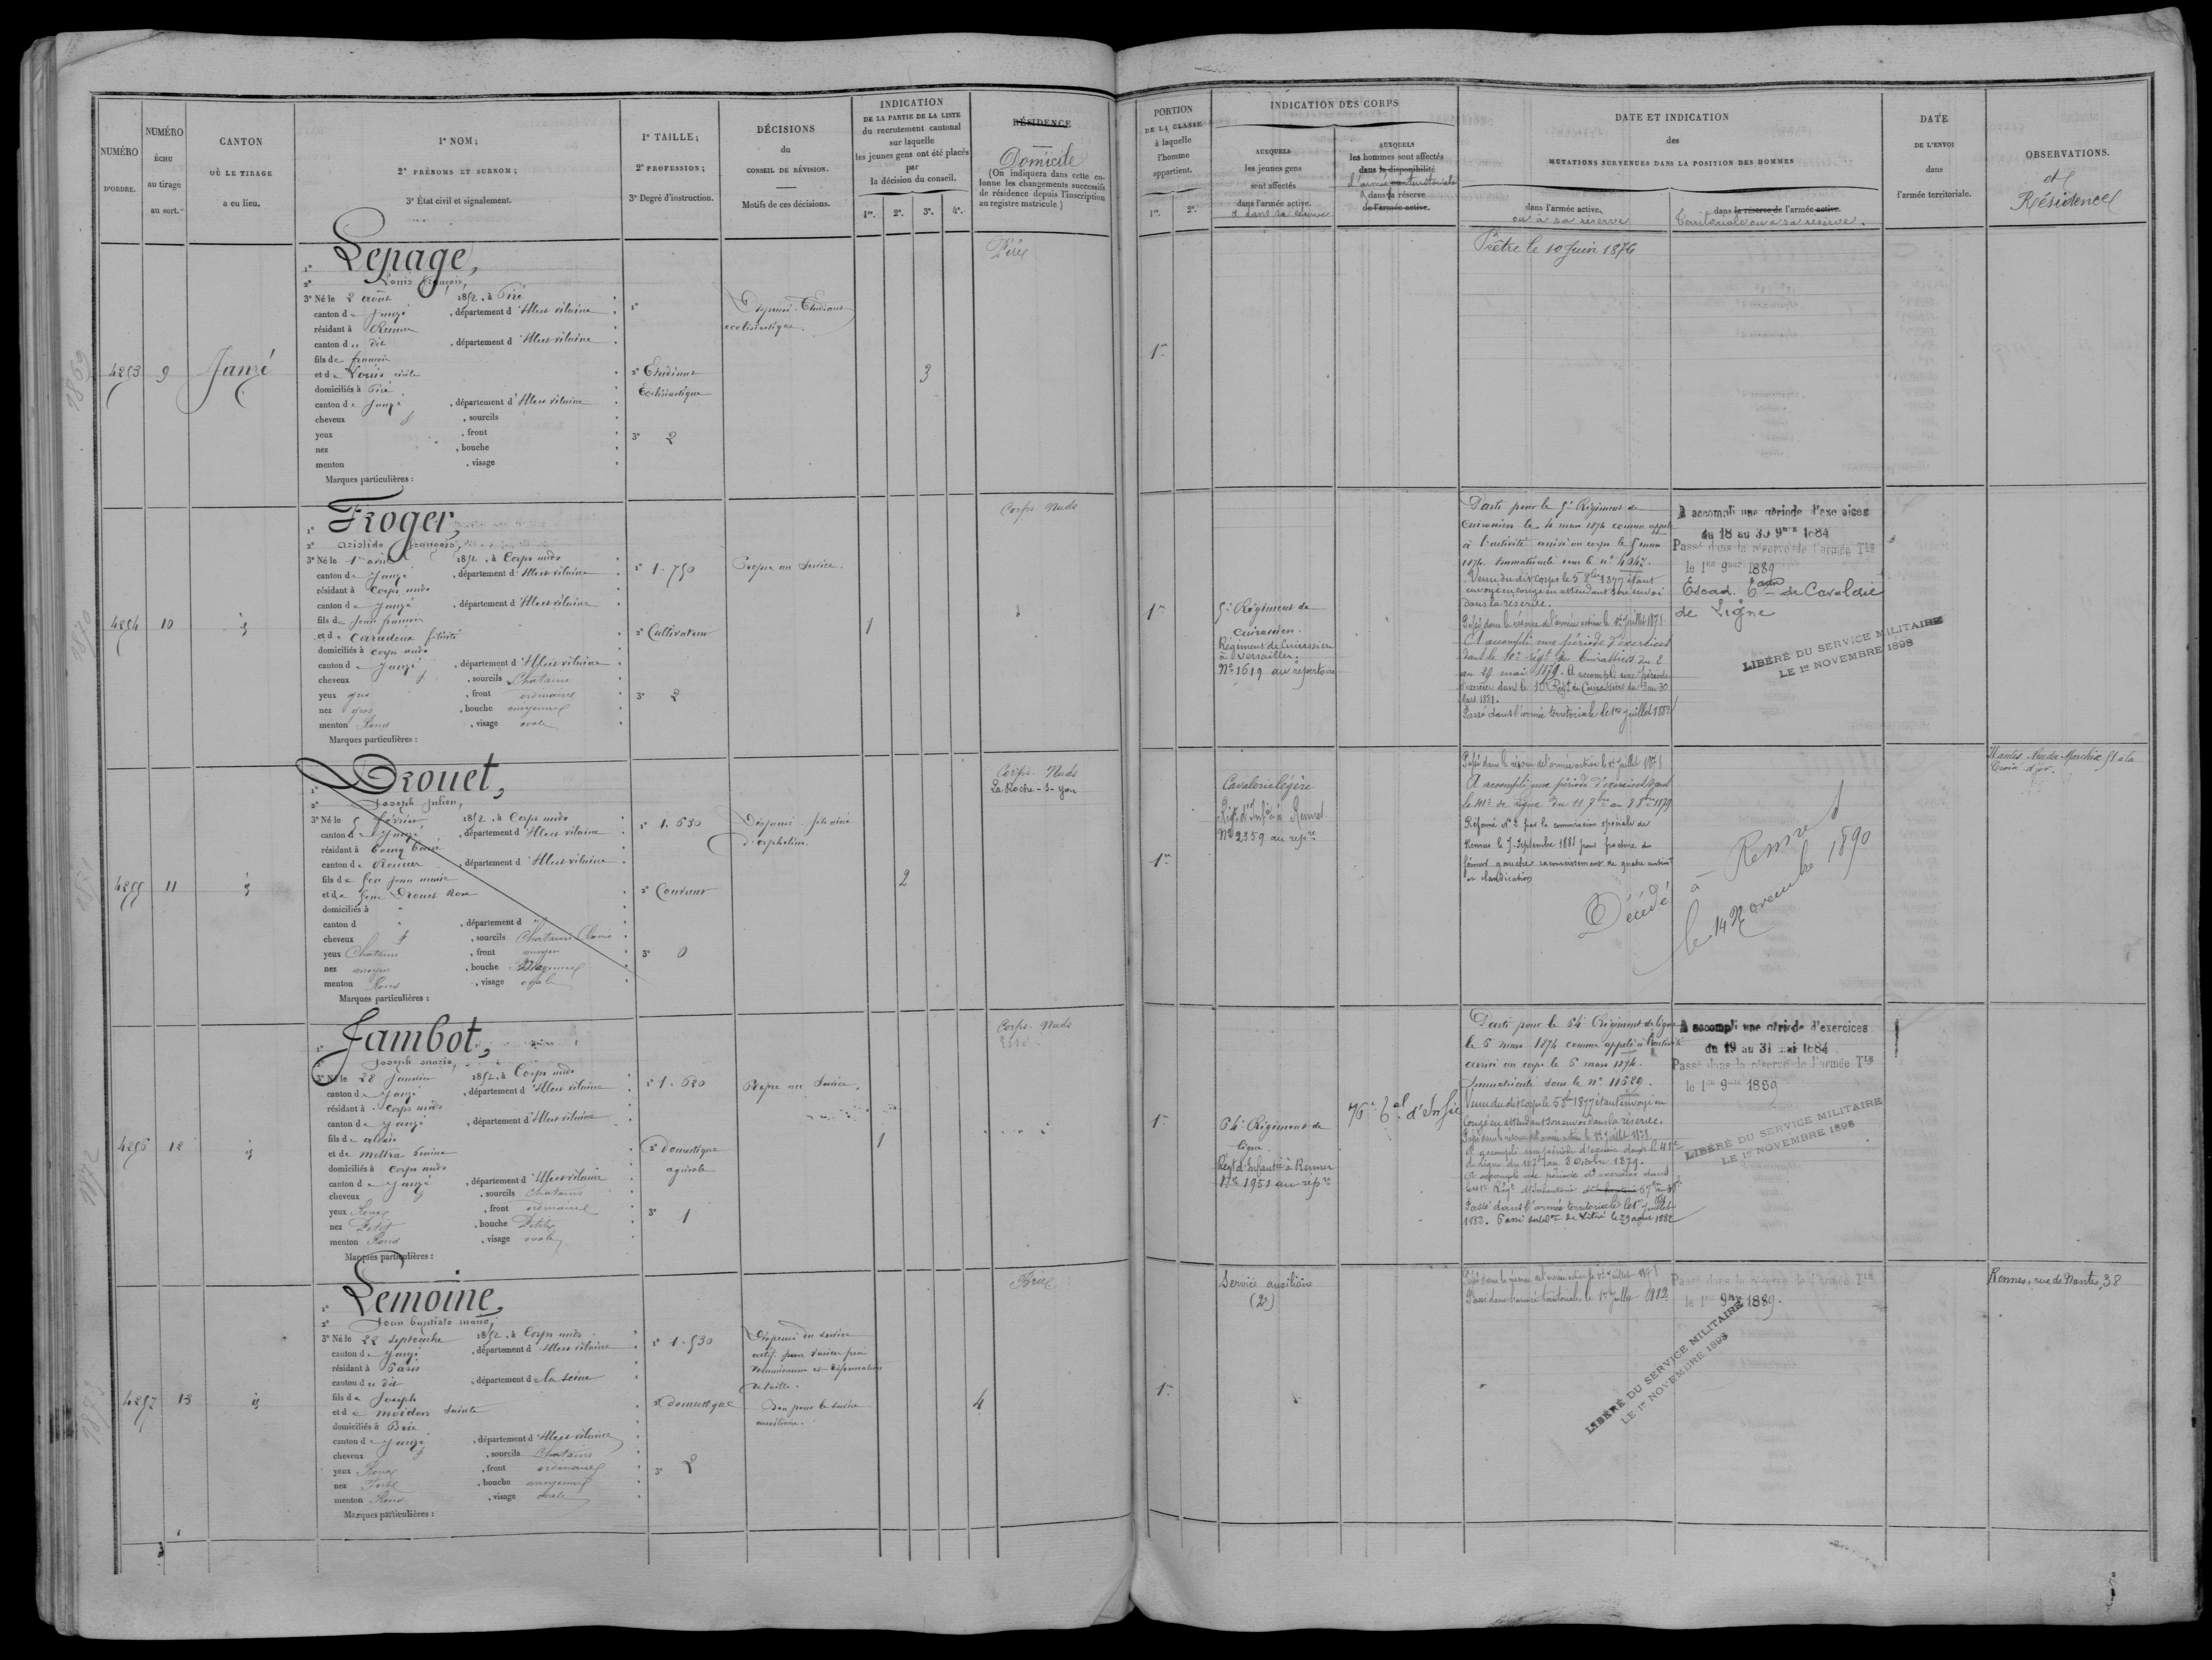 NUMÉRO
D'ORDRE.
NUMÉRO
ÉCHU
au tirage
au sort.
CANTON
OÙ LE TIRAGE
a eu lieu.
1º NOM;
2º PRÉNOMS ET SURNOM;
3º État civil et signalement.
1º TAILLE;
2º PROFESSION;
3º Degré d'instruction.
DÉCISIONS
du
CONSEIL DE RÉVISION.
Motifs de ces décisions.
INDICATION
DE LA PARTIE DE LA LISTE
du recrutement cantonal
sur laquelle
les jeunes gens ont été placés
par
la décision du conseil.
1re. 2e. 3e. 4e.
RÉSIDENCE
Domicile
(On indiquera dans cette colonne les changements successifs
de résidence depuis l'inscription
au registre matricule.)
4253
9
Janzé
1º Lepage,
2º Louis François,
3º Né le 2 août 1852, à Piré
canton de Janzé, département d'Ille et vilaine
résidant à Rennes
canton du dit, département d'Ille et vilaine
fils de françois
et de
domiciliés à Piré
canton de Janzé, département d'Ille et vilaine
cheveux , sourcils
yeux , front
nez , bouche
menton , visage
Marques particulières :
1º
2º Etudiant
Ecclésiastique
3º 2
Dispensé Etudiant
ecclésiastique.
3
Piré
4254
10
id
1º Froger,
2º Aristide François,
3º Né le 1er avril 1852, à Corps nuds
canton de Janzé, département d'Ille et vilaine
résidant à Corps nuds
canton de Janzé, département d'Ille et vilaine
fils de Jean francois
et de félicité
domiciliés à Corps nuds
canton de Janzé, département d'Ille et vilaine
cheveux , sourcils Chatains
yeux gris, front ordinaire
nez gros, bouche moyenne
menton Rond, visage ovale
Marques particulières :
1º 1.750
2º Cultivateur
3º 2
Propre au Service.
1
Corps Nuds
4255
11
id
1º Drouet,
2º Joseph Julien,
3º Né le 5 février 1852, à Corps nuds
canton de Janzé, département d'Ille et vilaine
résidant à Bourg barré
canton de Rennes, département d'Ille et vilaine
fils de feu Jean marie
et de feue Drouet Rose
domiciliés à "
canton d " , département d "
cheveux , sourcils Chatains Clairs
yeux Chatains, front moyen
nez moyen, bouche Moyenne
menton Rond, visage ovale
Marques particulières :
1º 1.630
2º Couvreur
3º 0
Dispensé fils aîné
d'orphelins.
2
Corps-Nuds
La Roche-S-Yon
4256
12
id
1º Jambot,
2º Joseph marie,
3º Né le 28 Janvier 1852, à Corps nuds
canton de Janzé, département d'Ille et vilaine
résidant à Corps nuds
canton de Janzé, département d'Ille et vilaine
fils de
et de
domiciliés à Corps nuds
canton de Janzé, département d'Ille et vilaine
cheveux , sourcils Chatains
yeux Roux, front ordinaire
nez Petit, bouche Petite
menton Rond, visage ovale
Marques particulières :
1º 1.680
2º Domestique
agricole
3º 1
Propre au Service.
1
Corps-Nuds
4257
13
id
1º Lemoine,
2º Jean baptiste marie,
3º Né le 22 septembre 1852, à Corps nuds
canton de Janzé, département d'Ille et vilaine
résidant à Paris
canton du dit, département de la Seine
fils de Joseph
et de
domiciliés à Brie
canton de Janzé, département d'Ille et vilaine
cheveux , sourcils Chatains
yeux Roux, front ordinaire
nez Fort, bouche moyenne
menton Rond, visage ovale
Marques particulières :
1º 1.530
2º domestique
3º 2
Dispensé du service
actif pour
de taille.
Bon pour le service
auxiliaire.
4
Brie
PORTION
DE LA CLASSE
à laquelle
l'homme
appartient.
1re. 2e.
INDICATION DES CORPS
AUXQUELS
les jeunes gens
sont affectés
dans l'armée active.
et dans sa réserve
AUXQUELS
les hommes sont affectés
dans la disponibilité
l'armée territoriale
dans la réserve
de l'armée active.
DATE ET INDICATION
des
MUTATIONS SURVENUES DANS LA POSITION DES HOMMES
dans l'armée active.
ou à sa réserve
dans la réserve de l'armée active.
Territoriale ou à sa réserve.
DATE
DE L'ENVOI
dans
l'armée territoriale.
OBSERVATIONS.
et
Résidence
1re
Prêtre le 10 Juin 1876
1re
5e Régiment de
Cuirassiers.
Régiment de Cuirassiers
à Versailles.
Nº 1619 au répertoire
Parti pour le 5e Régiment de
Cuirassiers le 4 mars 1874 comme appelé
à l'activité arrivé au corps le 5 mars
1874. Immatriculé sous le nº
Venu du dit corps le 5 8bre 1877 étant
envoyé en congé en attendant son envoi
dans la réserve.
Passé dans la réserve de l'armée active le 1er Juillet 1878.
A accompli une période d'exercices
dans le Régt de Cuirassiers du 2
au 29 mai 1879. A accompli une période
d'exercices dans le Régt de Cuirassiers du 3 au 30
Mars 1881.
Passé dans l'armée territoriale le 1er Juillet 1882
A accompli une période d'exercices
du 18 au 30 9bre 1884
Passé dans la réserve de l'armée Tle
le 1er 9bre 1889
Escad. de Cavalerie
de Ligne
LIBÉRÉ DU SERVICE MILITAIRE
LE 1er NOVEMBRE 1898
1re
Cavalerie légère
Régt d'Infie à Rennes
Nº 2359 au repre
Passé dans la réserve de l'armée active le 1er Juillet 1878
A accompli une période d'exercices dans
le 41e de Ligne du 11 7bre au 8 8bre 1879
Réformé Nº 2 par la commission spéciale de
Rennes le 7 Septembre 1881 pour fracture du
fémur gauche raccourcissement de quatre
et claudication
Décédé à Rennes
le 14 Novembre 1890
Nantes Marchix 51 a la
Croix d'or.
1re
64e Régiment de
Ligne
Régt d'Infanterie à Rennes
Nº 1951 au repre
76e d'Infie
Parti pour le 64e Régiment de ligne
le 5 mars 1874 comme appelé à l'activité
arrivé au corps le 6 mars 1874.
Immatriculé sous le nº 11589.
Venu du dit corps le 5 8bre 1877 étant envoyé en
Congé en attendant son envoi dans la réserve.
Passé dans la réserve de l'armée active le 1er Juillet 1878.
A accompli une période d'exercices dans le 41e
de Ligne du 11 7bre au 8 Octobre 1879.
A accompli une période d'exercices dans
Passé dans l'armée territoriale le 1er Juillet
1882. Passé de Vitré le 29 août 1882
A accompli une période d'exercices
du 19 au 31 mai 1884
Passé dans la réserve de l'armée Tle
le 1er 9bre 1889
LIBÉRÉ DU SERVICE MILITAIRE
LE 1er NOVEMBRE 1898
1re
Service auxiliaire
(2e)
Passé dans la réserve de l'armée active le 1er Juillet 1878
Passé dans l'armée territoriale le 1er Juillet 1882
Passé dans la réserve de l'armée Tle
le 1er 9bre 1889.
LIBÉRÉ DU SERVICE MILITAIRE
LE 1er NOVEMBRE 1898
Rennes, rue de Nantes, 38
1869
1870
1871
1872
1873